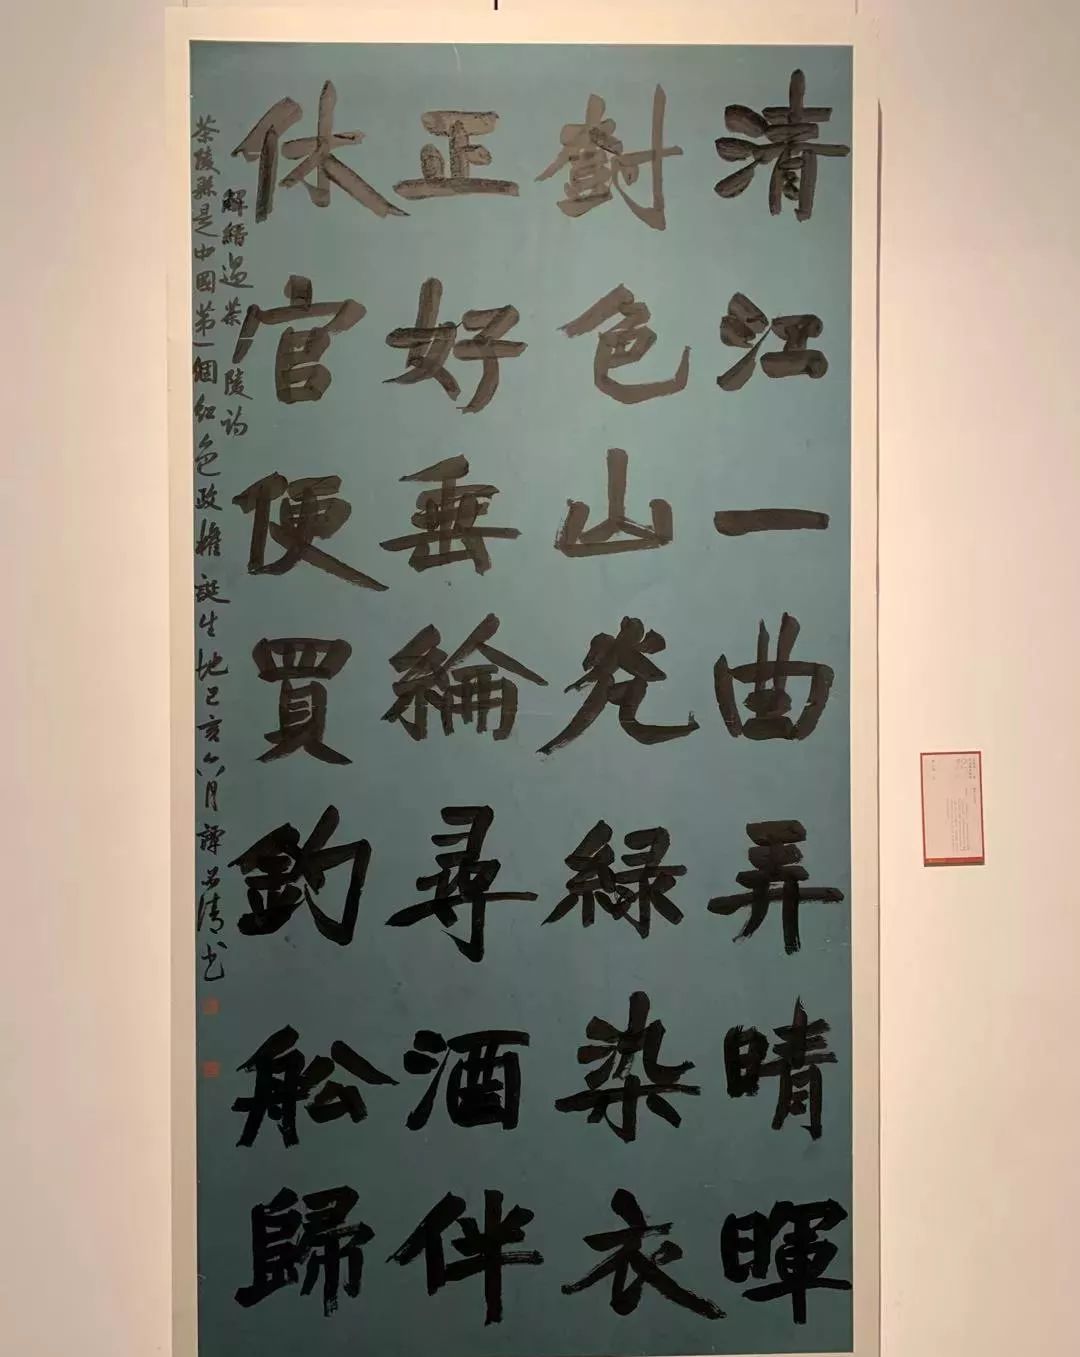 清江一曲弄晴暉
對色山光綠染衣
正好垂綸尋酒伴
休官便買釣舩歸
解縉過茶陵詩
茶陵縣是中國第一個紅色政權誕生地己亥六月譚清书